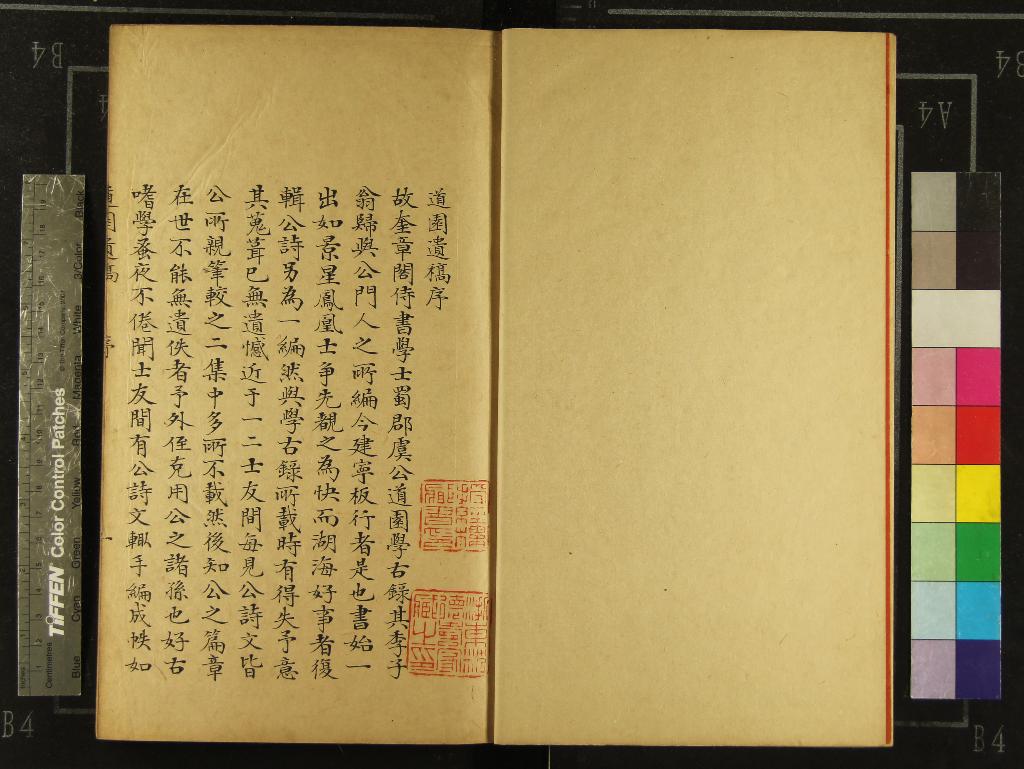 道園遺稿序
故奎章閣侍書學士蜀郡虞公道園學古錄其季子
翁歸與公門人之所編今建寧板行者是也書始一
出如景星鳳凰士爭先覩之為快而湖海好事者復
輯公詩另為一編然與學古錄所載時有得失予意
其蒐葺已無遺憾近于一二士友間每見公詩文皆
公所親筆較之二集中多所不載然後知公之篇章
在世不能無遺佚者予外侄克用公之諸孫也好古
嗜學蚤夜不倦聞士友間有公詩文輙手編成帙如
道園遺稿 序 一
TIFFEN Color Control Patches
Blue Cyan Green Yellow Red Magenta White 3/Color Black
Centimetres
Inches
B4
B4
A4
B4
B4